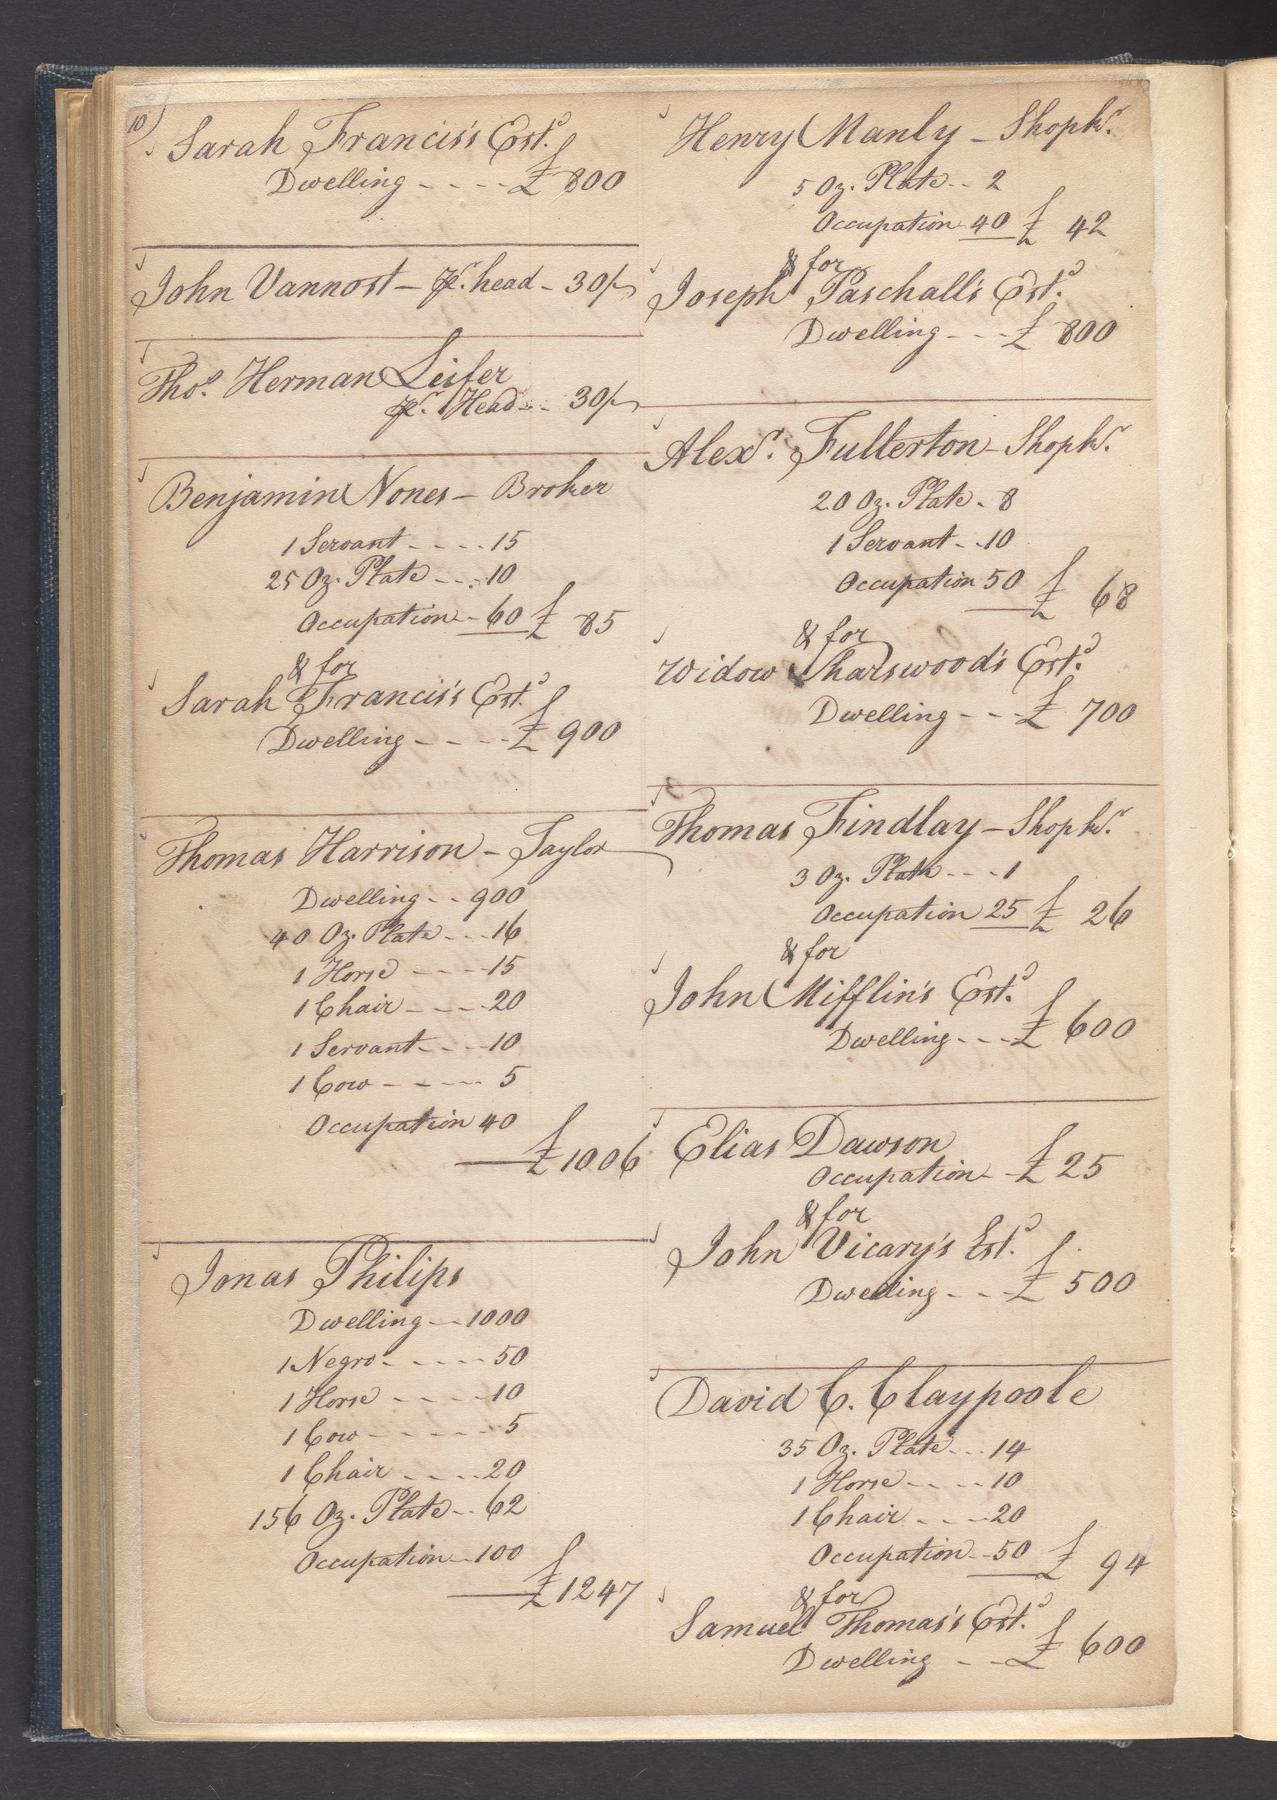 10
Sarah Francis's Estd.
Dwelling - - - - £ 800
John Vannost - pr. head - 30/-
Thos. Herman Leifer
pr. Head - - 30/-
Benjamin Nones - Broker
1 Servant - - - - 15
25 Oz. Plate - - - 10
Occupation - 60 £ 85
& for
Sarah Francis's Estd.
Dwelling - - - - £ 900
Thomas Harrison - Taylor
Dwelling - - 900
40 Oz. Plate - - - 16
1 Horse - - - - 15
1 Chair - - - - 20
1 Servant - - - 10
1 Cow - - - - - 5
Occupation 40
£ 1006
Jonas Philips
Dwelling - - 1000
1 Negro - - - - - 50
1 Horse - - - - 10
1 Cow - - - - - - 5
1 Chair - - - - 20
156 Oz. Plate - - 62
Occupation - - 100
£ 1247
Henry Manly - Shopkr.
5 Oz. Plate - - 2
Occupation 40 £ 42
& for
Joseph Paschall's Estd.
Dwelling - - - £ 800
Alexr. Fullerton - Shopkr.
20 Oz. Plate - 8
1 Servant - - 10
Occupation 50 £ 68
& for
Widow Sharswood's Estd.
Dwelling - - - £ 700
Thomas Findlay - Shopkr.
3 Oz. Plate - - - 1
Occupation 25 £ 26
& for
John Mifflin's Estd.
Dwelling - - - £ 600
Elias Dawson
Occupation - - £ 25
& for
John Vicary's Estd.
Dwelling - - - £ 500
David C. Claypoole
35 Oz. Plate - - - 14
1 Horse - - - - 10
1 Chair - - - - 20
Occupation - - 50 £ 94
& for
Samuel Thomas's Estd.
Dwelling - - £ 600